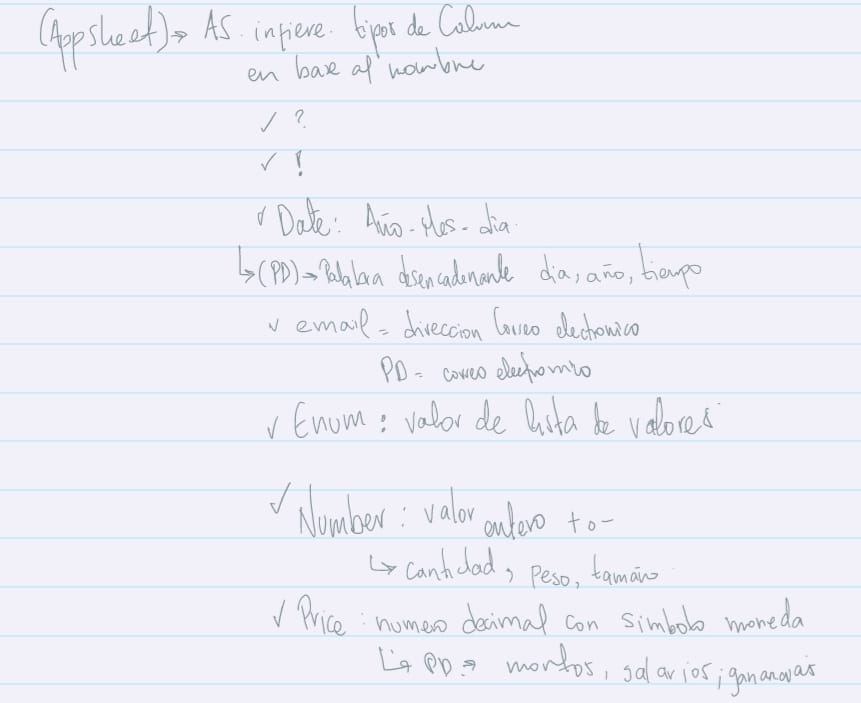 (Appsheet)→ AS. infiere. tipos de Column
en base al nombre
✓ ?
✓ !
✓ Date: Año-Mes-dia.
↳(PD)→Palabra desencadenante dia, año, tiempo
✓ email = direccion Correo electronico
PD = correo electronico
✓ Enum : valor de lista de valores
✓ Number : valor entero + o -
↳ cantidad, peso, tamaño
✓ Price : numero decimal con simbolo moneda
↳ PD → montos, salarios,